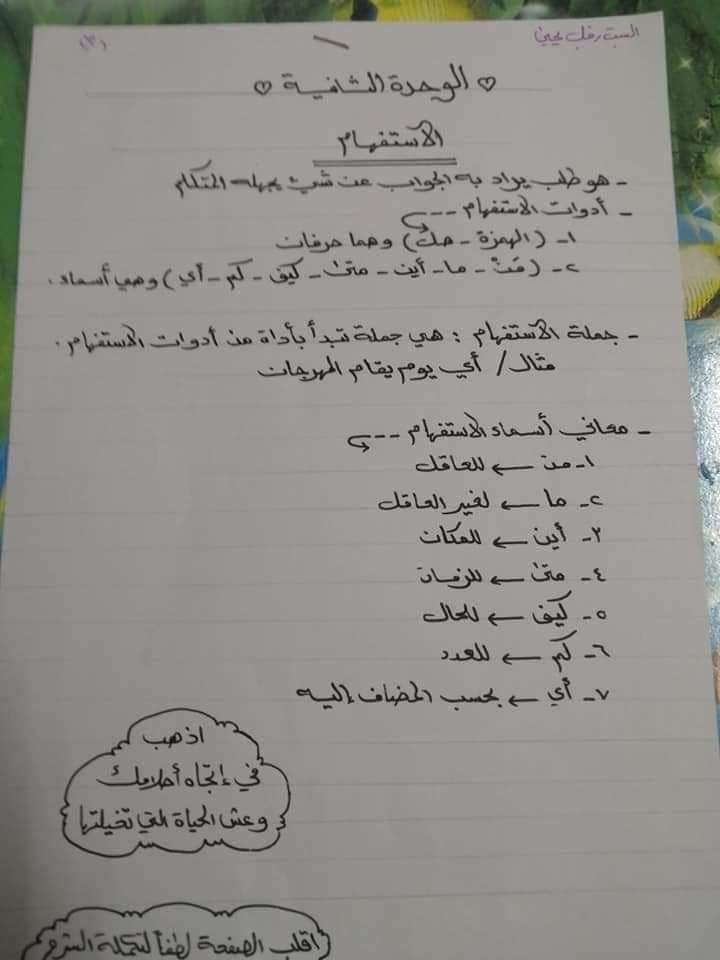 الست رفل يحيى
(٣)
الوحدة الثانية
الاستفهام
- هو طلب يراد به الجواب عن شيء يجهله المتكلم
- أدوات الاستفهام ---
١- (الهمزة - هل) وهما حرفان
٢- (مَنْ - ما - أين - متى - كيف - كم - أي) وهي أسماء.
- جملة الاستفهام : هي جملة تبدأ بأداة من أدوات الاستفهام.
مثال/ أي يوم يقام المهرجان
- معاني أسماء الاستفهام ---
١- من ← للعاقل
٢- ما ← لغير العاقل
٣- أين ← للمكان
٤- متى ← للزمان
٥- كيف ← للحال
٦- كم ← للعدد
٧- أي ← بحسب المضاف إليه
اذهب
في إتجاه أحلامك
وعش الحياة التي تخيلتها
اقلب الصفحة لطفاً لتكملة الشرح